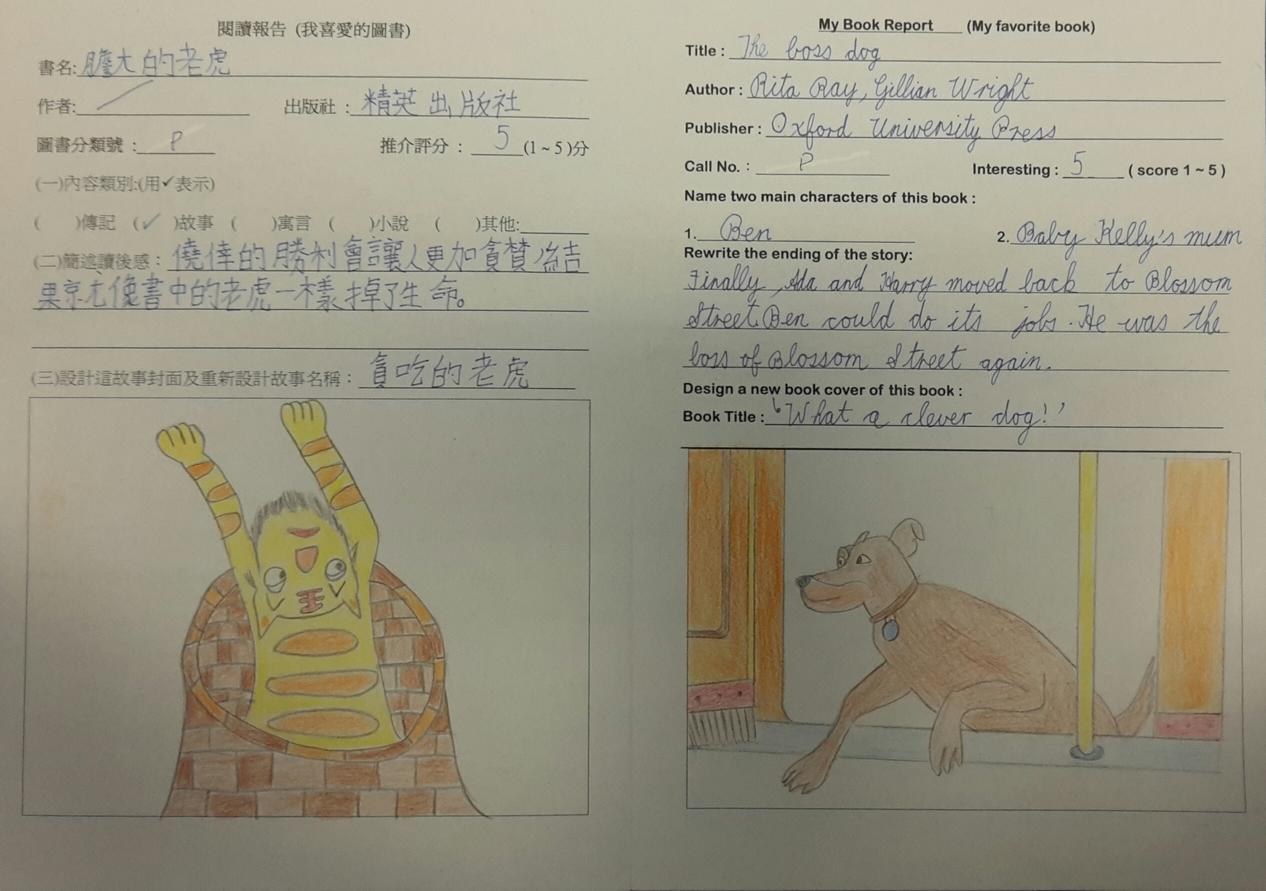 閱讀報告 (我喜愛的圖書)
書名: 膽大的老虎
作者: 出版社 : 精英出版社
圖書分類號 : P 推介評分 : 5 (1 ~ 5 )分
(一)內容類別:(用✔表示)
( )傳記 (✓ )故事 ( )寓言 ( )小說 ( )其他:
(二)簡述讀後感 : 僥倖的勝利會讓人更加貪婪,結
果就像書中的老虎一樣掉了生命。
(三)設計這故事封面及重新設計故事名稱 : 貪吃的老虎
My Book Report (My favorite book)
Title : The boss dog
Author : Rita Ray, Gillian Wright
Publisher : Oxford University Press
Call No. : P Interesting : 5 ( score 1 ~ 5 )
Name two main characters of this book :
1. Ben 2. Baby Kelly's mum
Rewrite the ending of the story:
Finally, Ada and Harry moved back to Blossom
Street. Ben could do its jobs. He was the
boss of Blossom Street again.
Design a new book cover of this book :
Book Title : 'What a clever dog!'